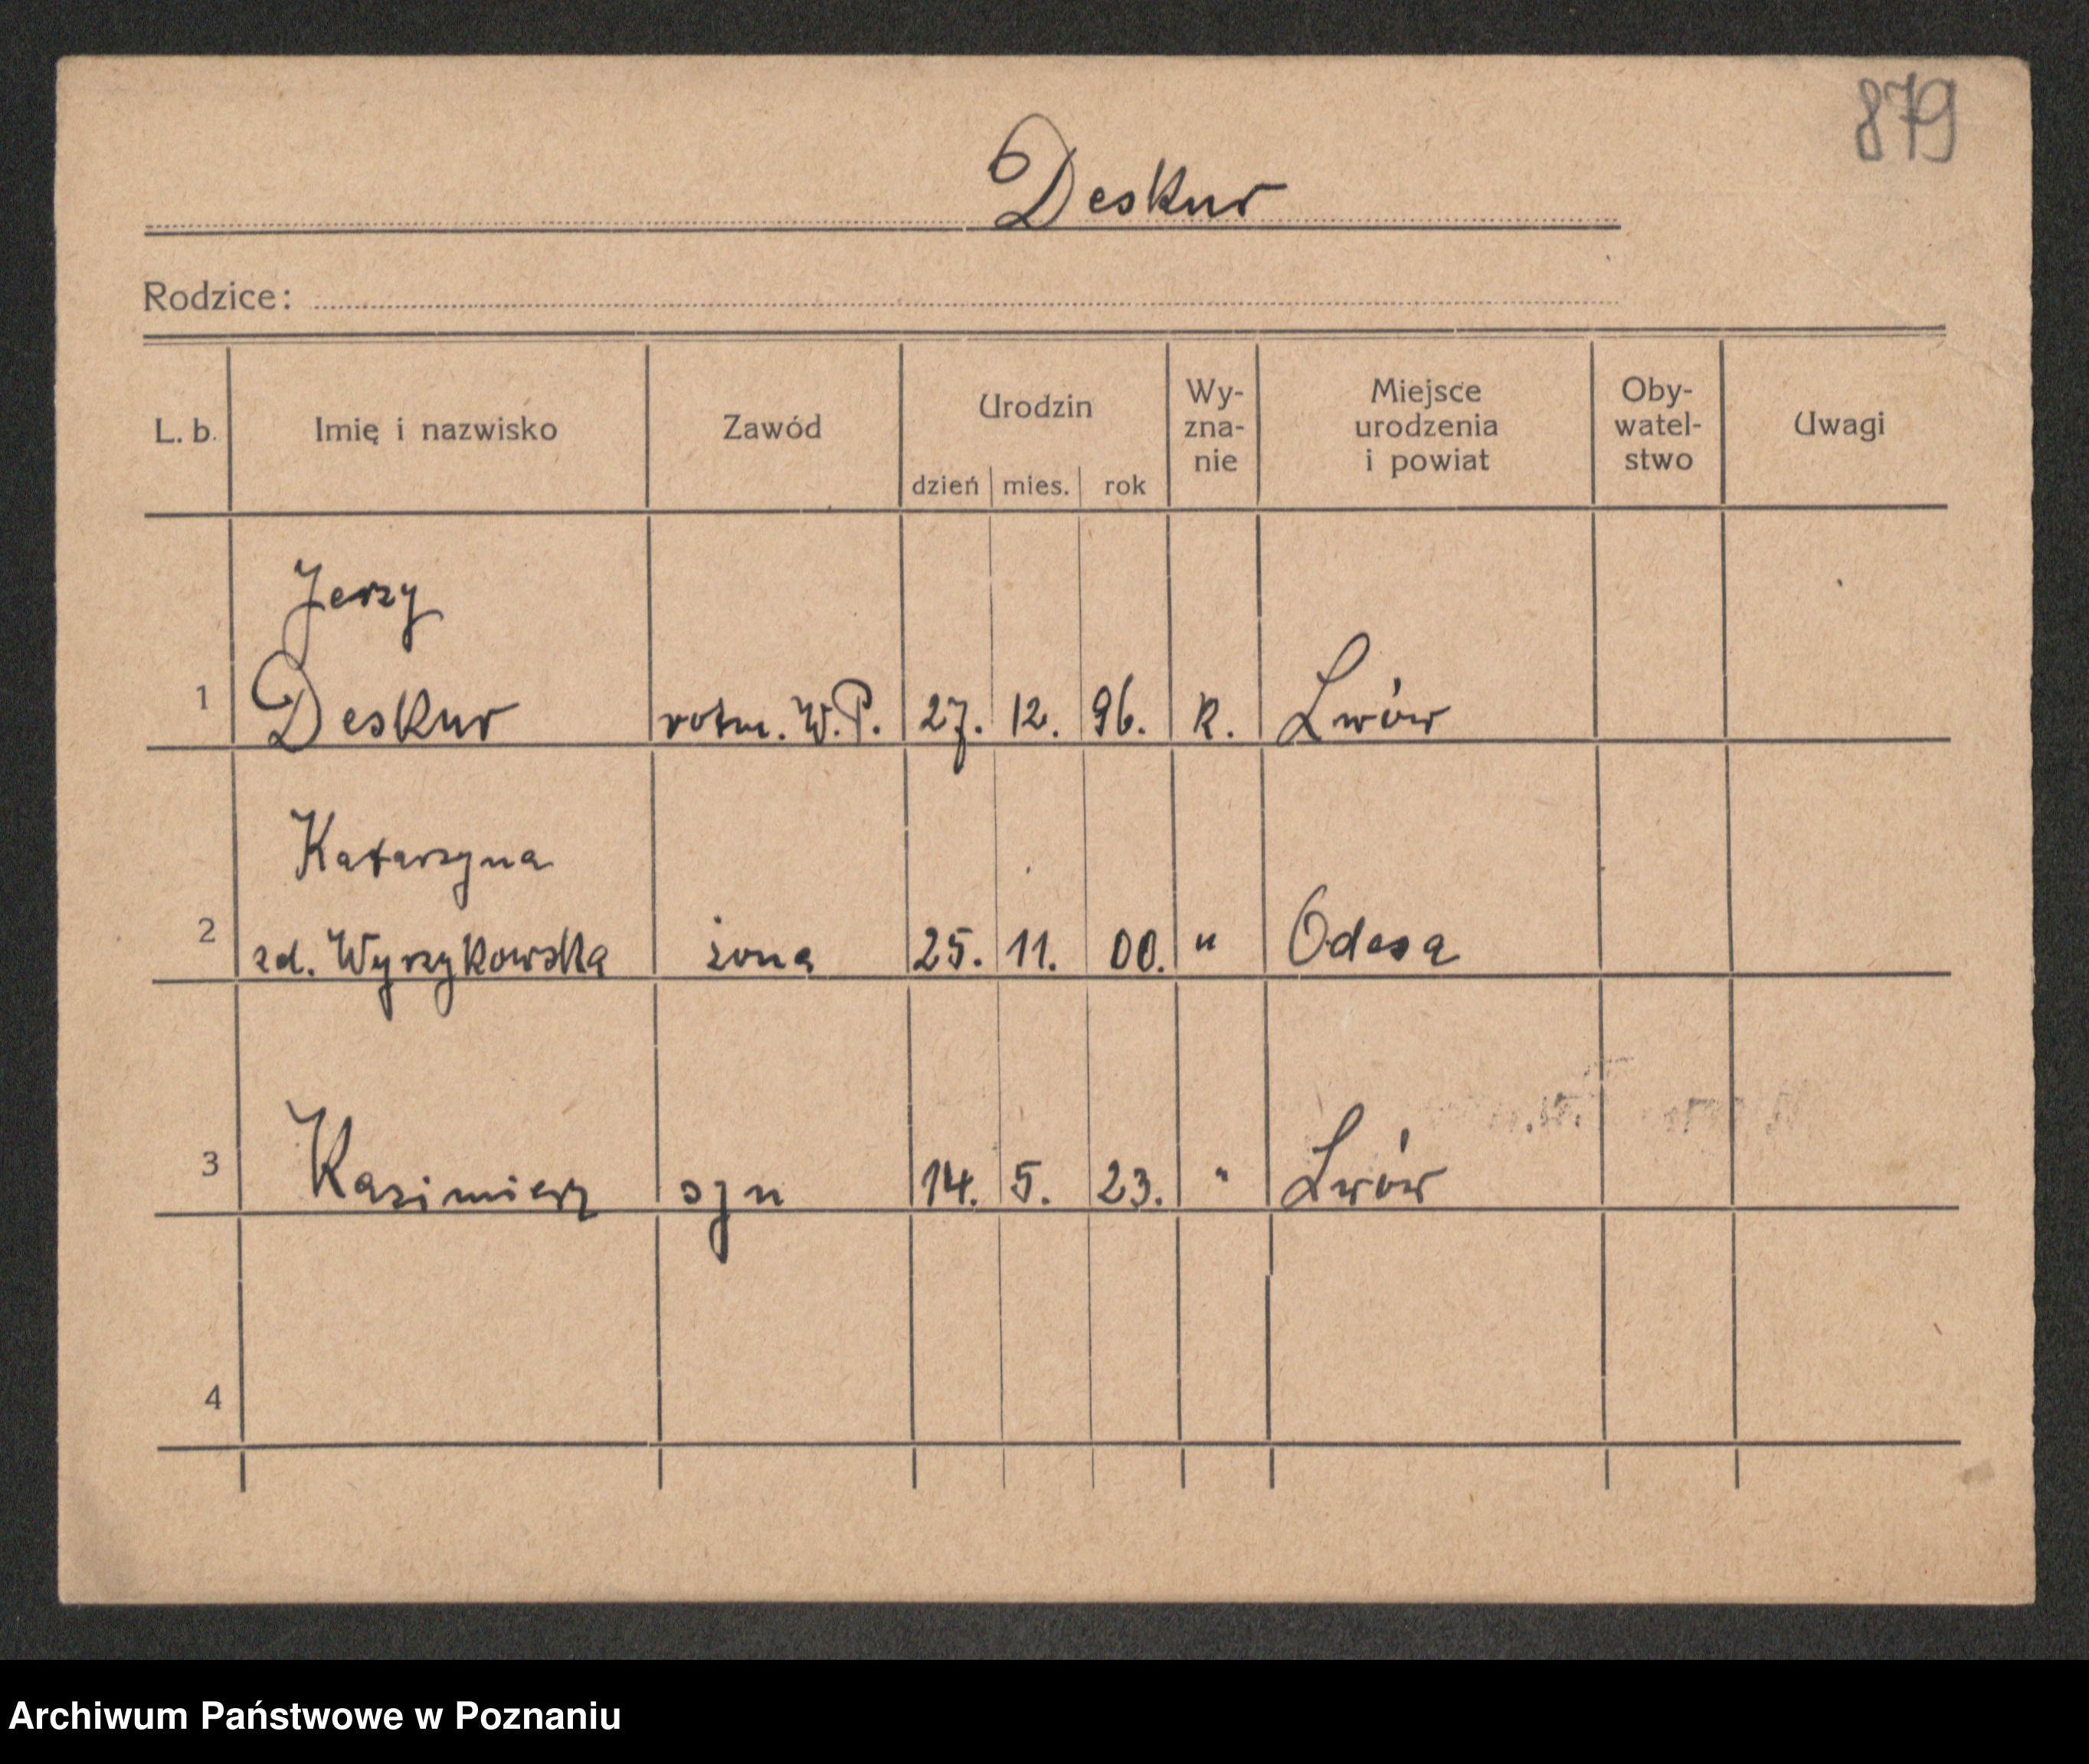 879
Deskur
Rodzice:
L. b. Imię i nazwisko Zawód Urodzin dzień mies. rok Wy-zna-nie Miejsce urodzenia i powiat Oby-watel-stwo Uwagi
Jerzy
1 Deskur rotm. W.P. 27. 12. 96. R. Lwów
Katarzyna
2 zd. Wyrzykowska żona 25. 11. 00. " Odesa
3 Kazimierz syn 14. 5. 23. " Lwów
4
Archiwum Państwowe w Poznaniu